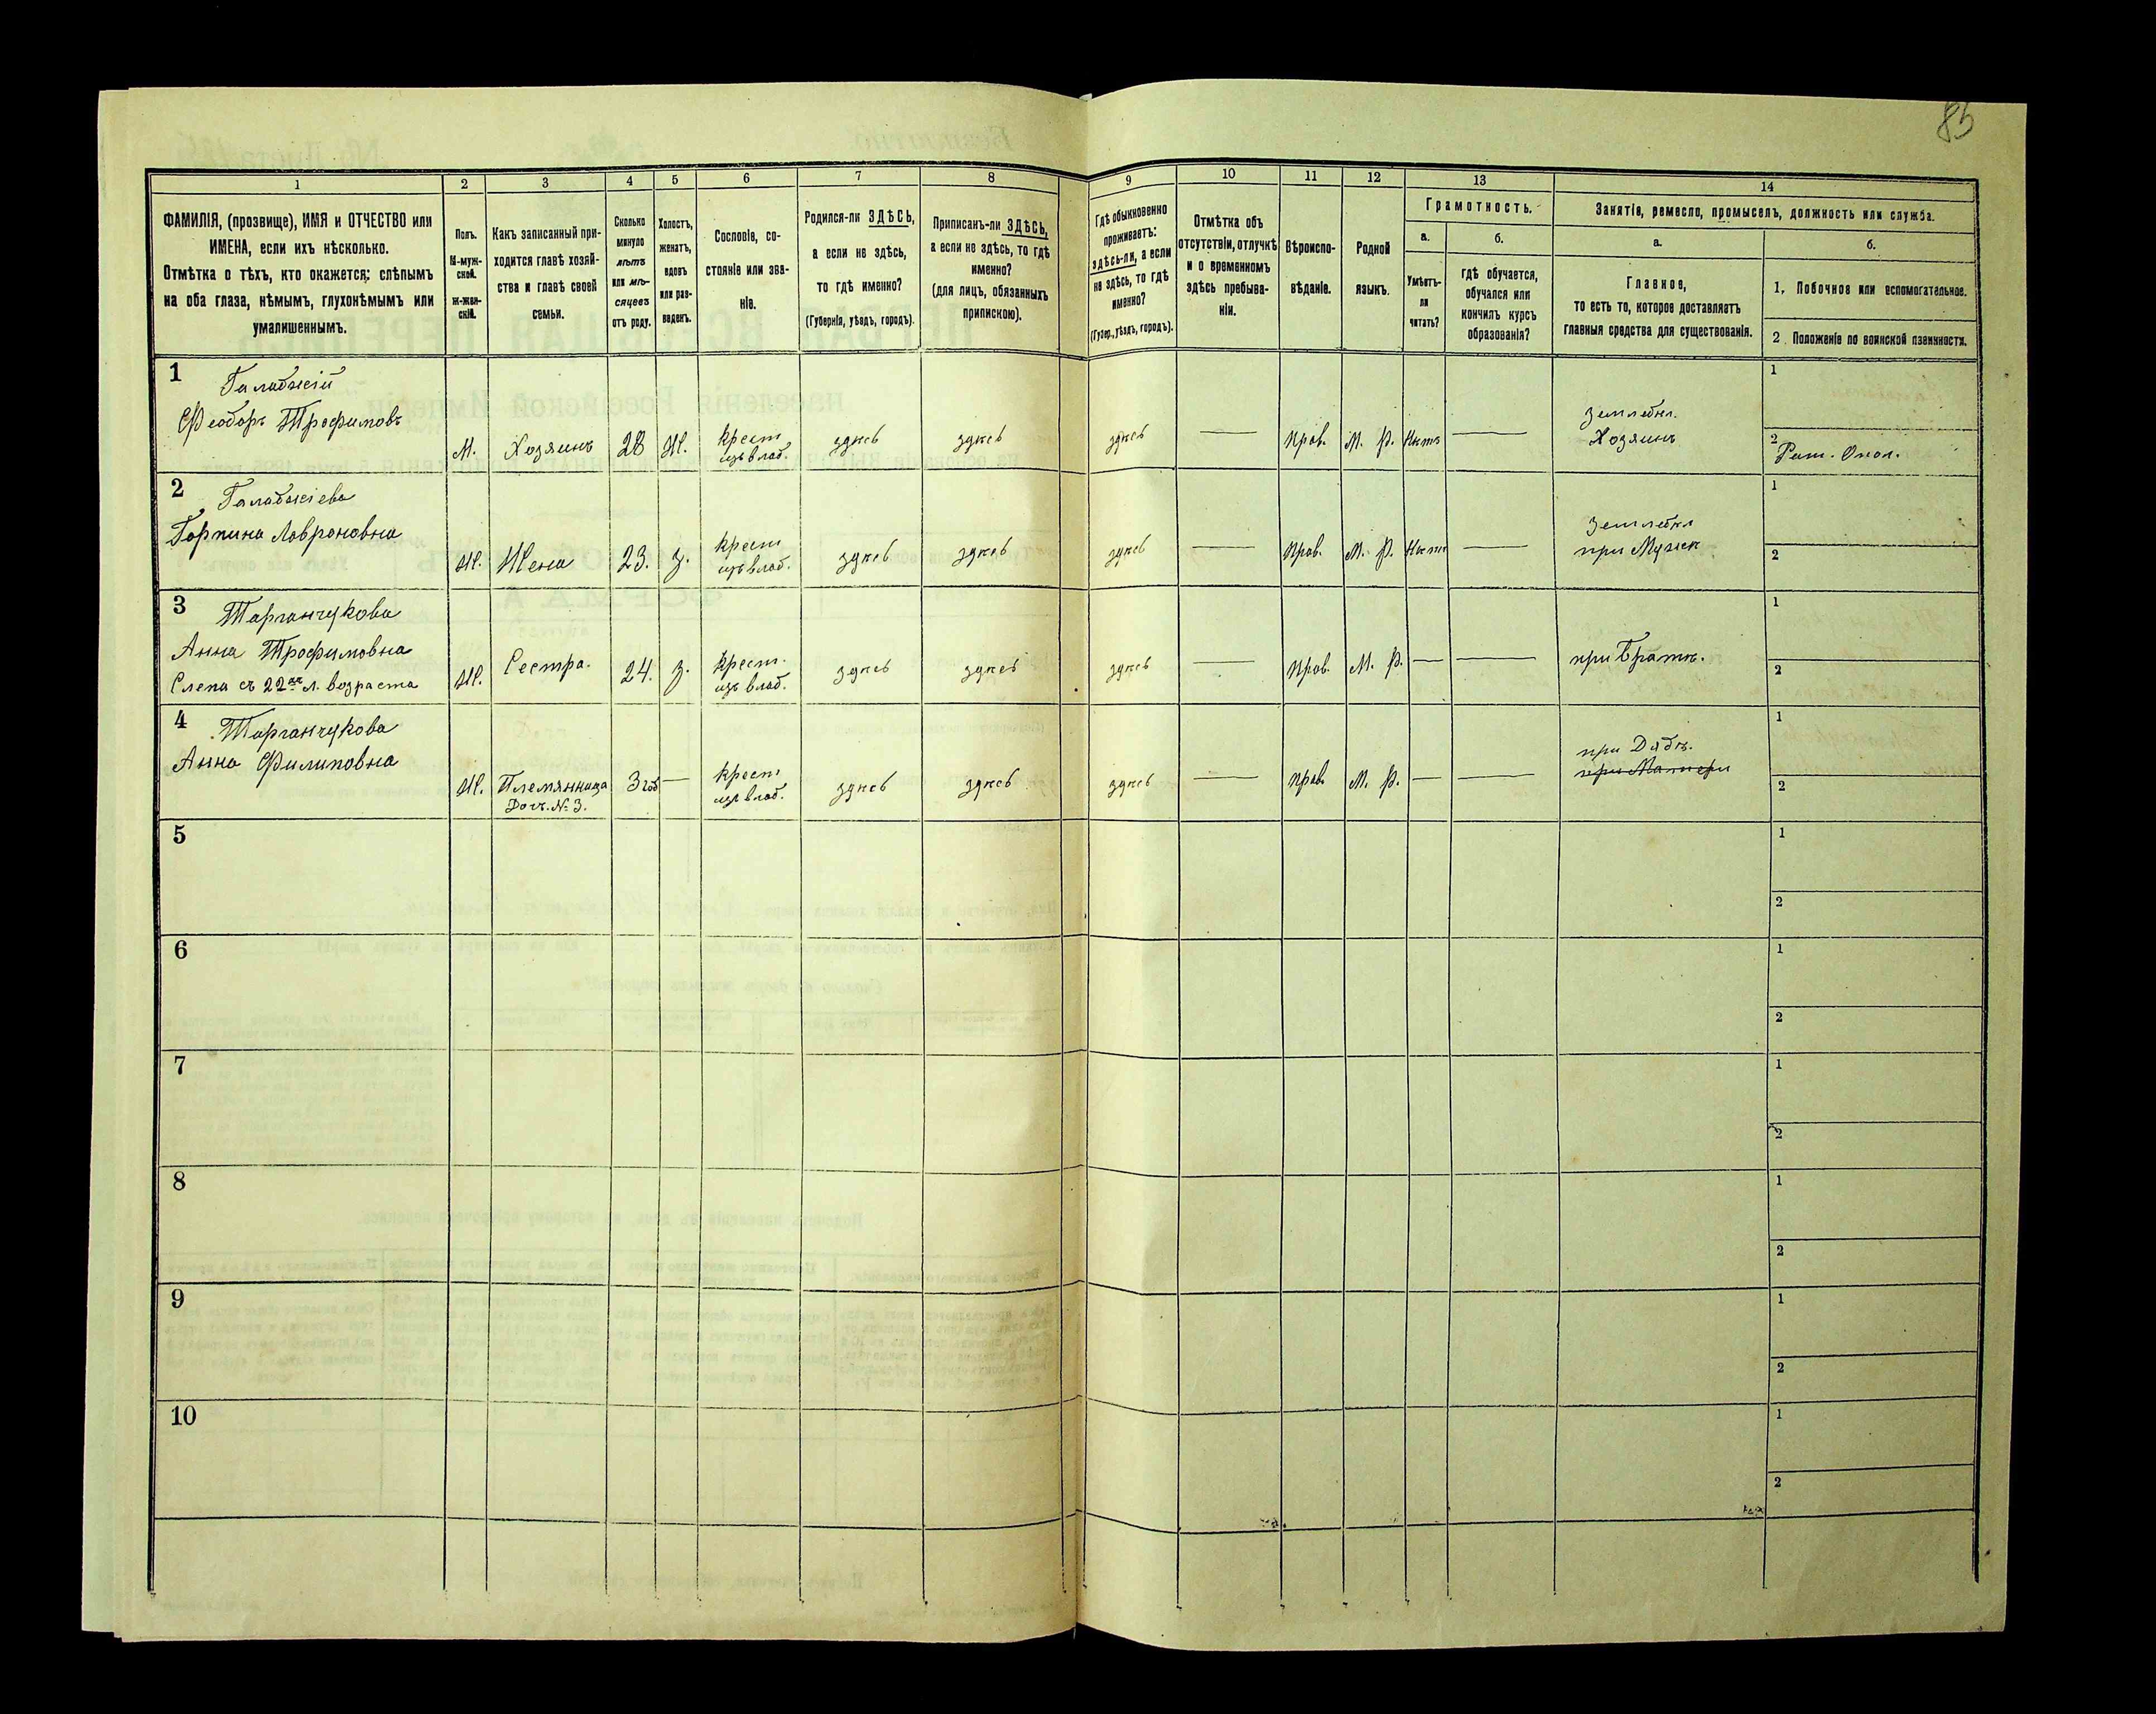 85
1 2 3 4 5 6 7 8 9 10 11 12 13 14
ФАМИЛІЯ, (прозвище), ИМЯ и ОТЧЕСТВО или
ИМЕНА, если ихъ нѣсколько.
Отмѣтка о тѣхъ, кто окажется: слѣпымъ
на оба глаза, нѣмымъ, глухонѣмымъ или
умалишеннымъ.
Полъ.
М-муж-
ской.
Ж-жен-
скій.
Какъ записанный при-
ходится главѣ хозяй-
ства и главѣ своей
семьи.
Сколько
минуло
лѣтъ
или мѣ-
сяцевъ
отъ роду.
Холостъ,
женатъ,
вдовъ
или раз-
веденъ.
Сословіе, со-
стояніе или зва-
ніе.
Родился-ли ЗДѢСЬ,
а если не здѣсь,
то гдѣ именно?
(Губернія, уѣздъ, городъ).
Приписанъ-ли ЗДѢСЬ,
а если не здѣсь, то гдѣ
именно?
(для лицъ, обязанныхъ
припискою).
Гдѣ обыкновенно
проживаетъ:
здѣсь-ли, а если
не здѣсь, то гдѣ
именно?
(Губер., уѣздъ, городъ).
Отмѣтка объ
отсутствіи, отлучкѣ
и о временномъ
здѣсь пребыва-
ніи.
Вѣроиспо-
вѣданіе.
Родной
языкъ.
Грамотность.
а.
Умѣетъ-
ли
читать?
б.
гдѣ обучается,
обучался или
кончилъ курсъ
образованія?
Занятіе, ремесло, промыселъ, должность или служба.
а.
Главное,
то есть то, которое доставляетъ
главныя средства для существованія.
б.
1, Побочное или вспомогательное.
2 Положеніе по воинской повинности.
1 Галабжсій
Феодоръ Трофимовъ
М. Хозяинъ 28 Ж. крест. изъ влад. здѣсь здѣсь здѣсь — Прав. М. Р. Нѣтъ — Землед. Хозяинъ
1
2 Рат. Опол.
2 Галабжсіева
Горпина Лавроновна
Ж. Жена 23. З. крест. изъ влад. здѣсь здѣсь здѣсь — Прав. М. Р. Нѣтъ — Землед. при Мужѣ
1
2
3 Тарганчукова
Анна Трофимовна
Слепа съ 22хъ л. возраста
Ж. Сестра. 24. З. крест. изъ влад. здѣсь здѣсь здѣсь — Прав. М. Р. — — при Братѣ.
1
2
4 Тарганчукова
Анна Филиповна
Ж. Племянница Доч. № 3. 3 год — крест. изъ влад. здѣсь здѣсь здѣсь — прав. М. Р. — — при Дядѣ. при Матери
1
2
5
1
2
6
1
2
7
1
2
8
1
2
9
1
2
10
1
2